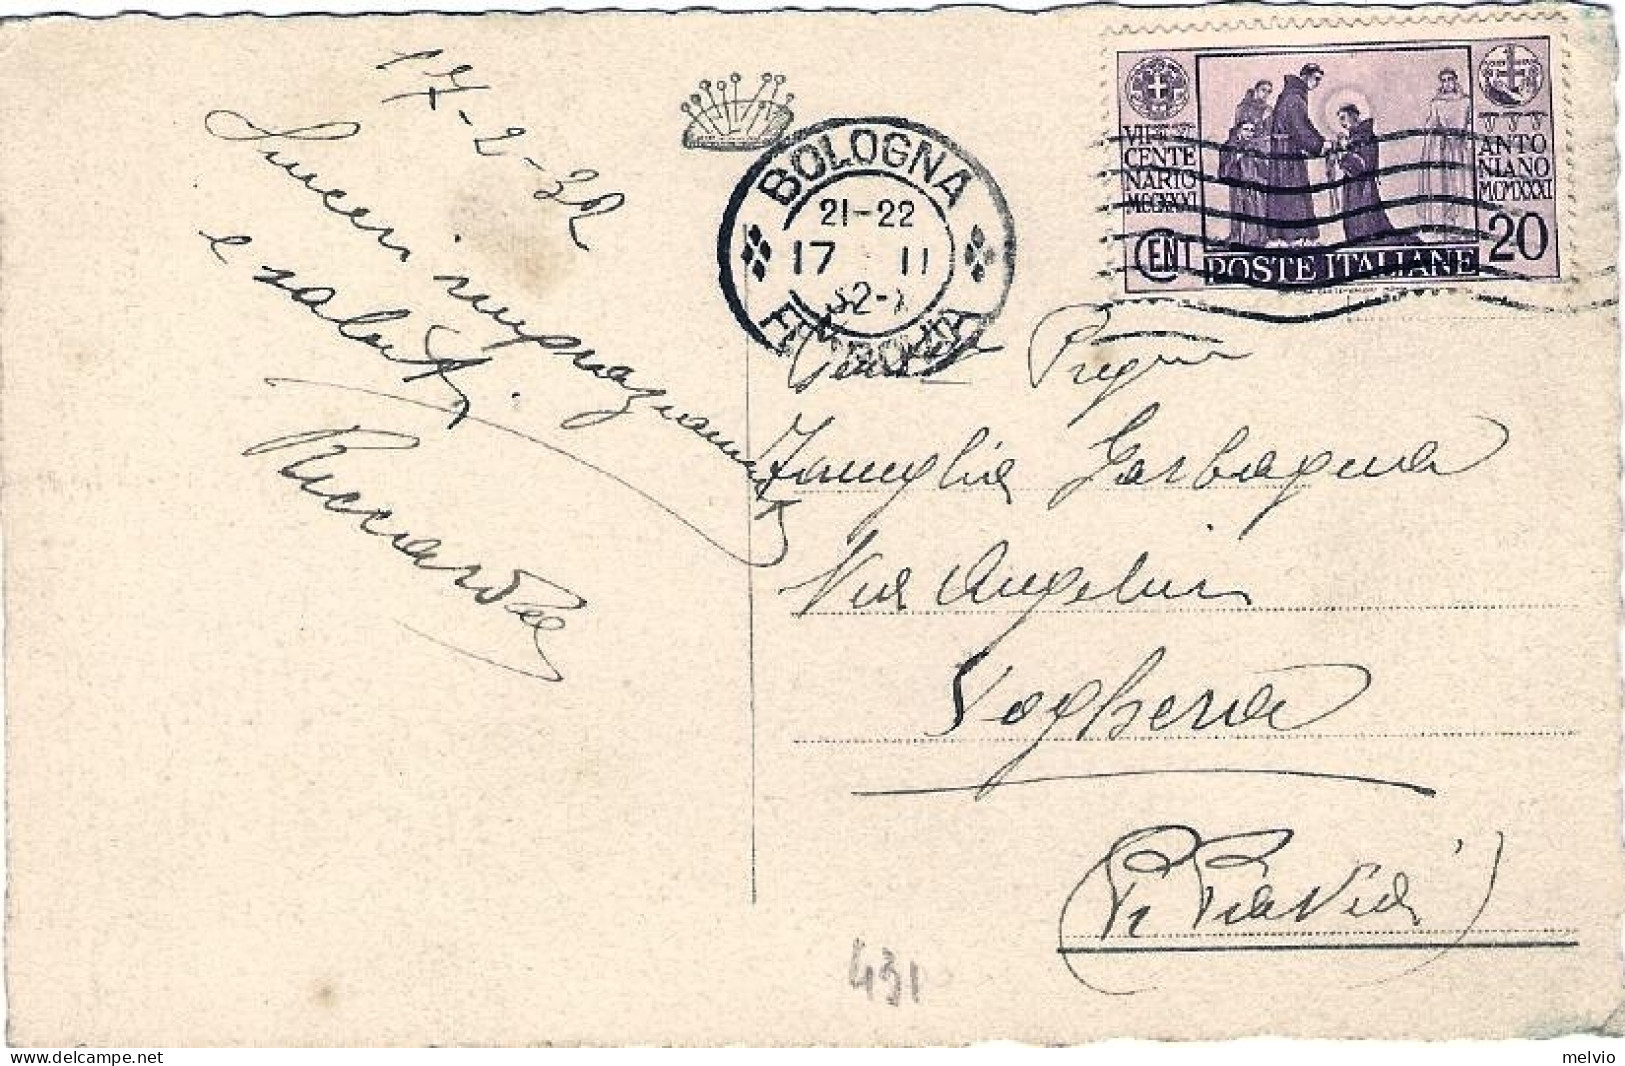 17-2-32
Sinceri ringraziamenti
e saluti
Riccardo
BOLOGNA
21-22
17 II
32-X
FERROVIA
VII CENTE
NARIO
MCCXXXI
ANTO
NIANO
MCMXXXI
CENT 20
POSTE ITALIANE
Famiglia Garbagna
Via Angelini
Voghera
(Pr Pavia)
431
melvio